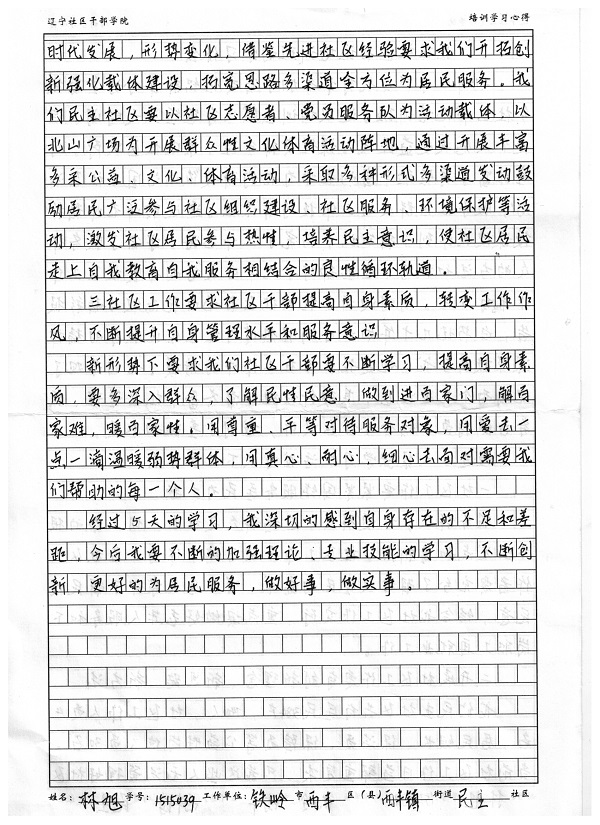 辽宁社区干部学院 培训学习心得
时代发展，形势变化，借鉴先进社区经验要求我们开拓创
新强化载体建设，拓宽思路多渠道全方位为居民服务。我
们民主社区要以社区志愿者、党员服务队为活动载体，以
北山广场为开展群众性文化体育活动阵地，通过开展丰富
多采公益、文化、体育活动，采取多种形式多渠道发动鼓
励居民广泛参与社区组织建设、社区服务、环境保护等活
动，激发社区居民参与热性，培养民主意识，使社区居民
走上自我教育自我服务相结合的良性循环轨道。
三社区工作要求社区干部提高自身素质，转变工作作
风，不断提升自身管理水平和服务意识
新形势下要求我们社区干部要不断学习，提高自身素
质，要多深入群众，了解民性民意，做到进百家门，解百
家难，暖百家性。用尊重、平等对待服务对象，用爱去一
点一滴温暖弱势群体，用真心、耐心、细心去面对需要我
们帮助的每一个人。
经过5天的学习，我深切的感到自身存在的不足和差
距，今后我要不断的加强理论、专业技能的学习，不断创
新，更好的为居民服务，做好事，做实事。
姓名：林旭 学号：1515039 工作单位：铁岭 市 西丰 区（县）西丰镇 街道 民主 社区